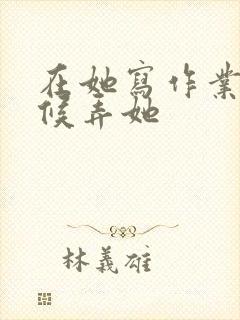 在她寫作業
候弄她
林義雄